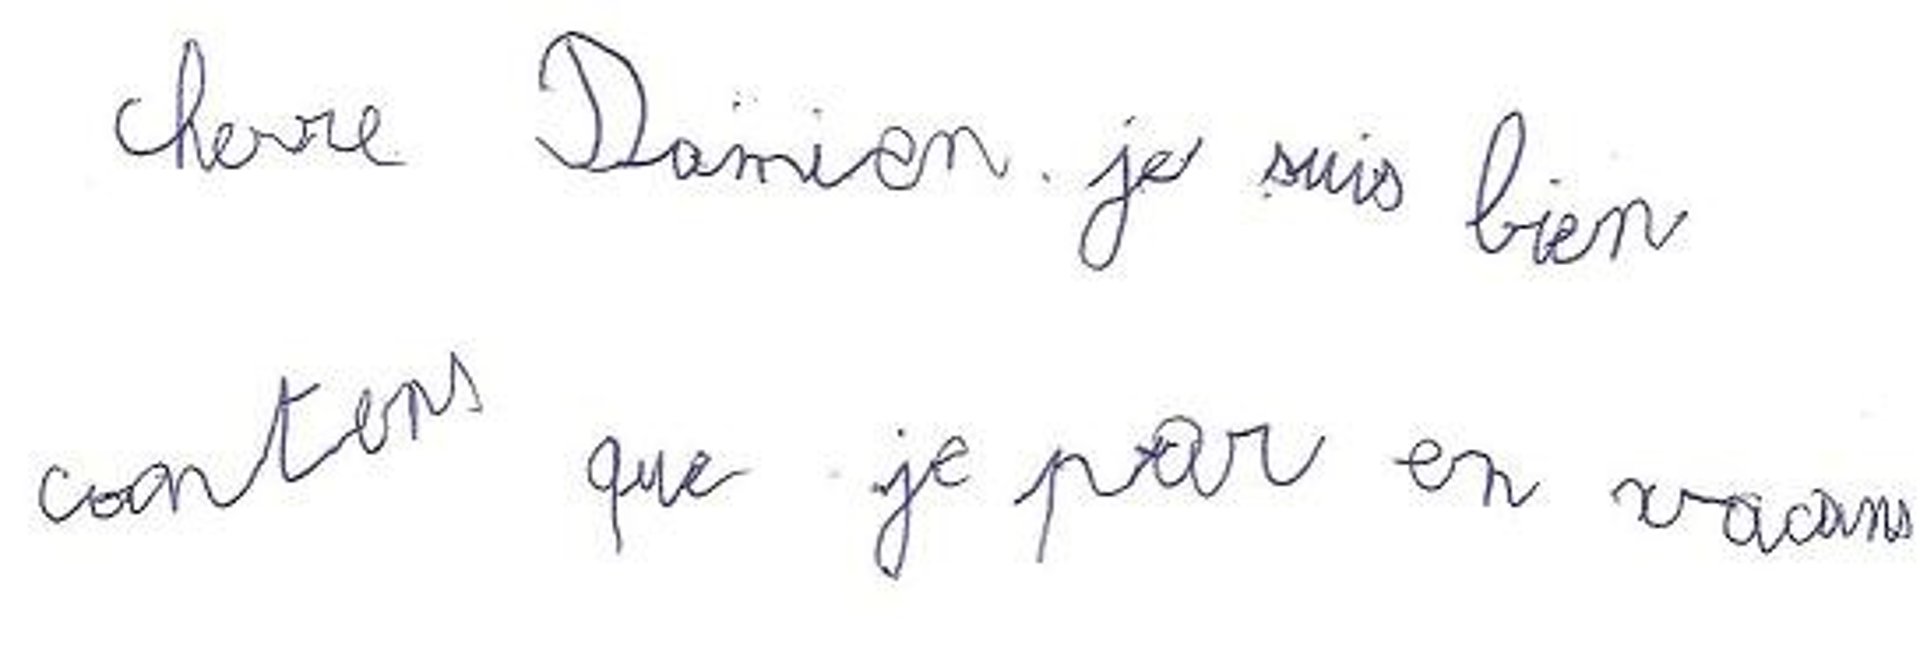 cherre Damien. je suis bien
contens que je par en vacans